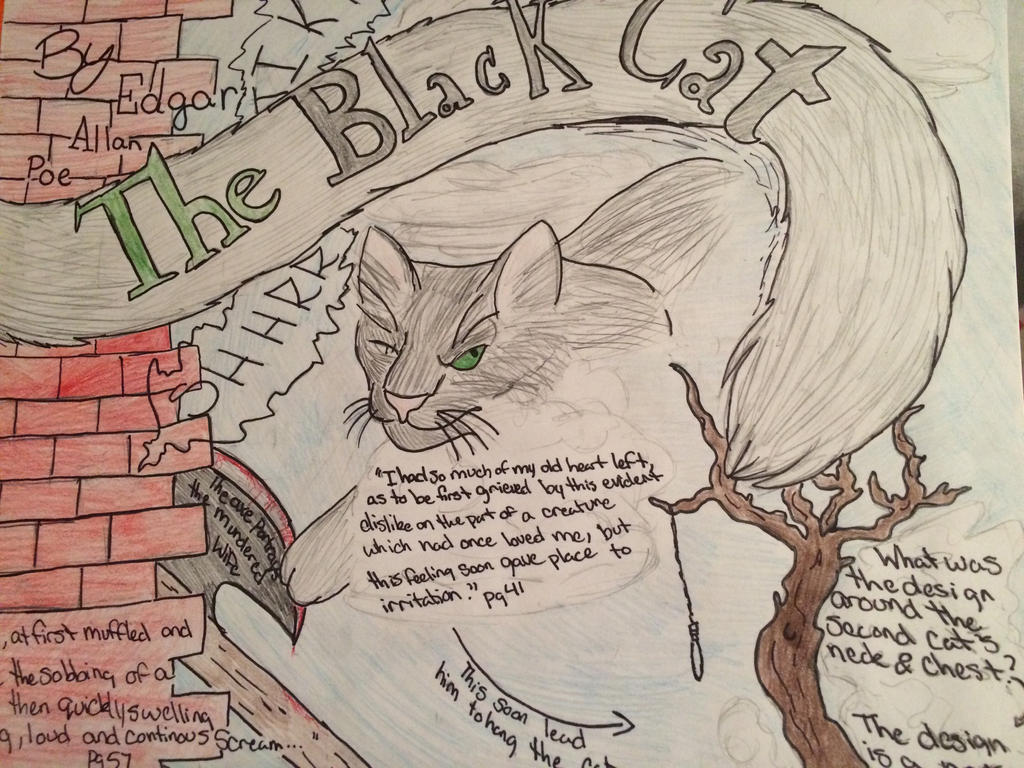 By
Edgar
Allan
Poe
The Black Cat
OHHHRR
The axe portrays
the murdered
wife
"I had so much of my old heart left,
as to be first grieved by this evident
dislike on the part of a creature
which had once loved me, but
this feeling soon gave place to
irritation." pg 41
This soon lead
him to hang the cat
, at first muffled and
the sobbing of a
then quickly swelling
g, loud and continous scream..."
Pg 57
What was
the design
around the
second cat's
neck & chest?
The design
is a